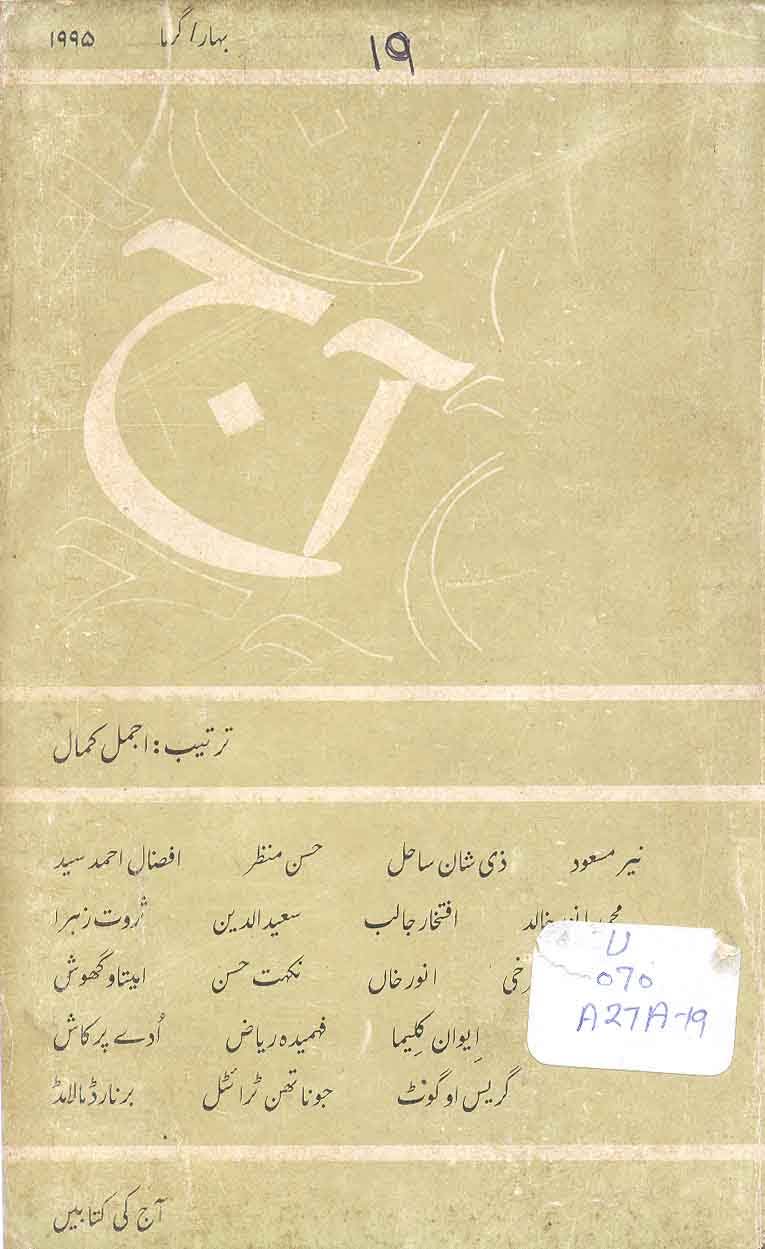 بہار / گرما ۱۹۹۵
19
آج
ترتیب : اجمل کمال
نیر مسعود ذی شان ساحل حسن منظر افضال احمد سید
محمد انور خالد افتخار جالب سعید الدین ثروت زہرا
رخی انور خاں نکہت حسن امیتاو گھوش
اِیوان کلِیما فہمیدہ ریاض اُدے پرکاش
گریس اوگوٹ جوناتھن ٹرائٹل برنارڈ مالامڈ
U
070
A27A-19
آج کی کتابیں